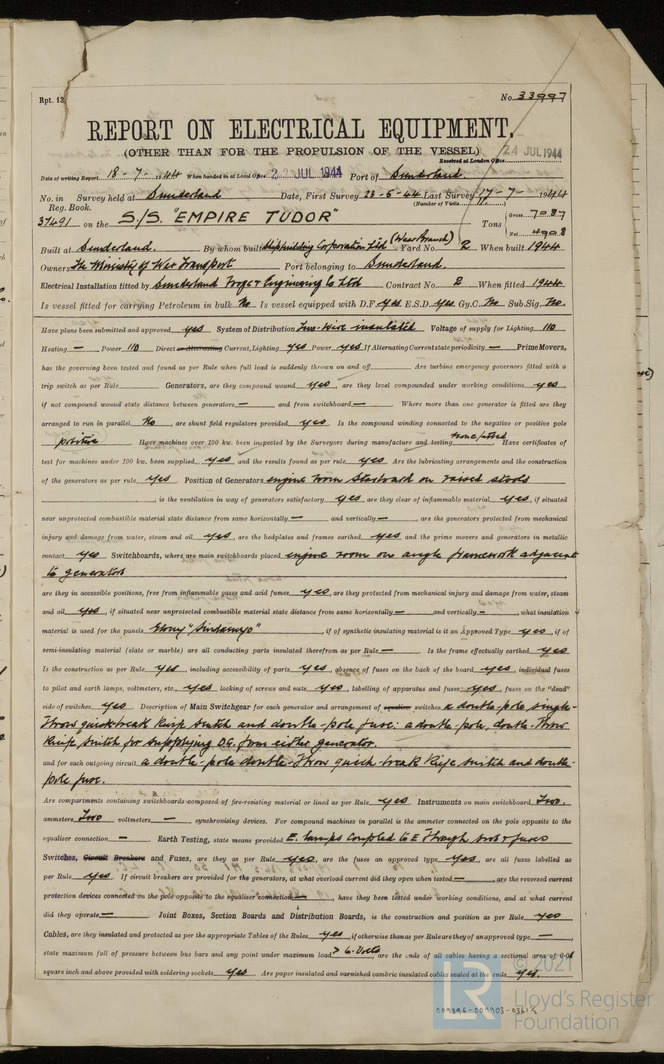 Rpt. 13.
No. 33997
REPORT ON ELECTRICAL EQUIPMENT.
(OTHER THAN FOR THE PROPULSION OF THE VESSEL)
24 JUL 1944
Received at London Office
Date of writing Report 18-7-1944 When handed in at Local Office 22 JUL 1944 Port of Sunderland.
No. in Survey held at Sunderland Date, First Survey 23-6-44 Last Survey 17-7-1944
Reg. Book. (Number of Visits
37491 on the S/S. "EMPIRE TUDOR" Tons { Gross 7087
Net 4908
Built at Sunderland. By whom built Shipbuilding Corporation Ltd (Wear Branch) Yard No. 2 When built 1944
Owners The Ministry of War Transport Port belonging to Sunderland.
Electrical Installation fitted by Sunderland Forge & Engineering Co Ltd Contract No. 2 When fitted 1944
Is vessel fitted for carrying Petroleum in bulk No Is vessel equipped with D.F. yes E.S.D. yes Gy.C. No Sub.Sig. No.
Have plans been submitted and approved yes System of Distribution Two-Wire insulated Voltage of supply for Lighting 110
Heating — Power 110 Direct or Alternating Current, Lighting yes Power yes If Alternating Current state periodicity — Prime Movers,
has the governing been tested and found as per Rule when full load is suddenly thrown on and off Are turbine emergency governors fitted with a
trip switch as per Rule Generators, are they compound wound yes, are they level compounded under working conditions yes,
if not compound wound state distance between generators — and from switchboard — Where more than one generator is fitted are they
arranged to run in parallel No, are shunt field regulators provided yes Is the compound winding connected to the negative or positive pole
positive Have machines over 100 kw. been inspected by the Surveyors during manufacture and testing none fitted Have certificates of
test for machines under 100 kw. been supplied yes and the results found as per rule yes Are the lubricating arrangements and the construction
of the generators as per rule yes Position of Generators engine room starboard on raised stools
, is the ventilation in way of generators satisfactory yes are they clear of inflammable material yes, if situated
near unprotected combustible material state distance from same horizontally — and vertically —, are the generators protected from mechanical
injury and damage from water, steam and oil yes, are the bedplates and frames earthed yes and the prime movers and generators in metallic
contact yes Switchboards, where are main switchboards placed engine room on angle framework adjacent
to generators
are they in accessible positions, free from inflammable gases and acid fumes yes, are they protected from mechanical injury and damage from water, steam
and oil yes, if situated near unprotected combustible material state distance from same horizontally — and vertically —, what insulation
material is used for the panels Ebony "Sindanyo", if of synthetic insulating material is it an Approved Type yes, if of
semi-insulating material (slate or marble) are all conducting parts insulated therefrom as per Rule — Is the frame effectually earthed yes
Is the construction as per Rule yes, including accessibility of parts yes absence of fuses on the back of the board yes individual fuses
to pilot and earth lamps, voltmeters, etc. yes locking of screws and nuts yes, labelling of apparatus and fuses yes, fuses on the "dead"
side of switches yes. Description of Main Switchgear for each generator and arrangement of equaliser switches a double-pole, single-
throw quick-break knife switch and double-pole fuse: a double-pole, double-throw
knife switch for supplying D.G. from either generator.
and for each outgoing circuit a double-pole double-throw quick-break knife switch and double-
pole fuse.
Are compartments containing switchboards composed of fire-resisting material or lined as per Rule yes Instruments on main switchboard Two.
ammeters Two voltmeters — synchronizing devices. For compound machines in parallel is the ammeter connected on the pole opposite to the
equaliser connection — Earth Testing, state means provided E. lamps coupled to E through swt & fuses
Switches, Circuit Breakers and Fuses, are they as per Rule yes, are the fuses an approved type yes, are all fuses labelled as
per Rule yes If circuit breakers are provided for the generators, at what overload current did they open when tested —, are the reversed current
protection devices connected on the pole opposite to the equaliser connection —, have they been tested under working conditions, and at what current
did they operate — Joint Boxes, Section Boards and Distribution Boards, is the construction and position as per Rule yes
Cables, are they insulated and protected as per the appropriate Tables of the Rules yes, if otherwise than as per Rule are they of an approved type —,
state maximum fall of pressure between bus bars and any point under maximum load > 6. Volts, are the ends of all cables having a sectional area of 0.04
square inch and above provided with soldering sockets yes Are paper insulated and varnished cambric insulated cables sealed at the ends yes.
© 2021
LR
Lloyd's Register
Foundation